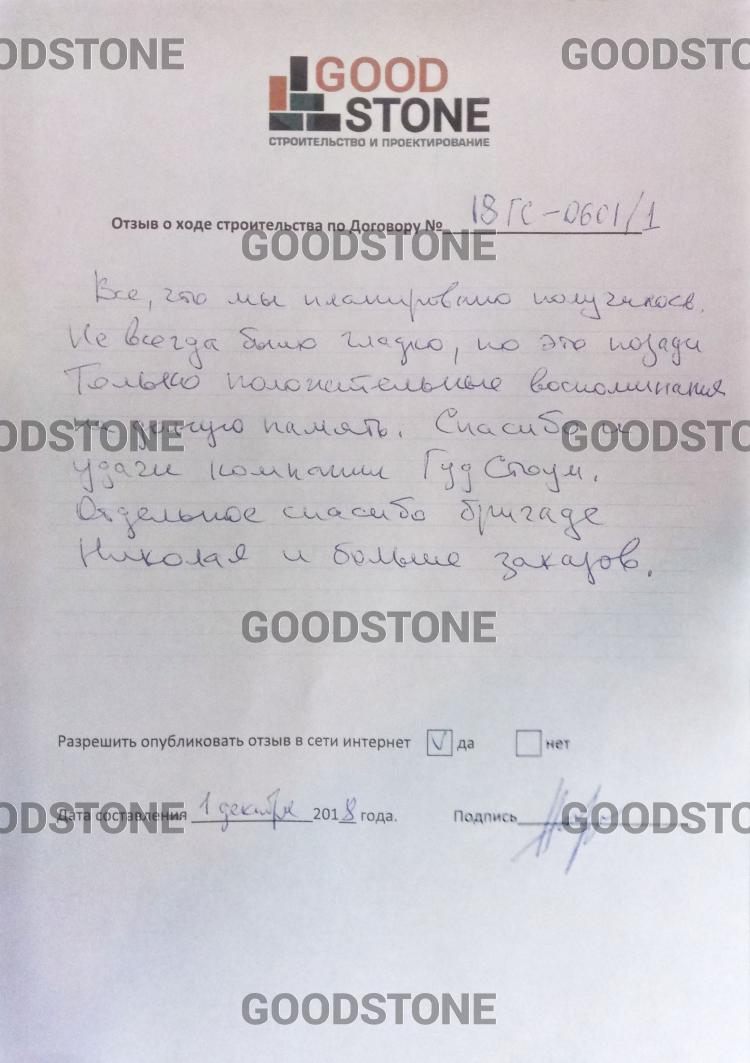 GOODSTONE GOODSTO
GOOD
STONE
СТРОИТЕЛЬСТВО И ПРОЕКТИРОВАНИЕ
Отзыв о ходе строительства по Договору № 18ГС-0601/1
GOODSTONE
Все, что мы планировано получилось.
Не всегда было гладко, но это позади
Только положительные воспоминания
на долгую память. Спасибо и
GOODSTONE GOODSTO
удачи компании Гуд Стоун.
Отдельное спасибо бригаде
Николая и больше заказов.
GOODSTONE
Разрешить опубликовать отзыв в сети интернет V да нет
Дата составления 1 декабря 2018 года. Подпись
GOODSTONE GOODSTO
GOODSTONE